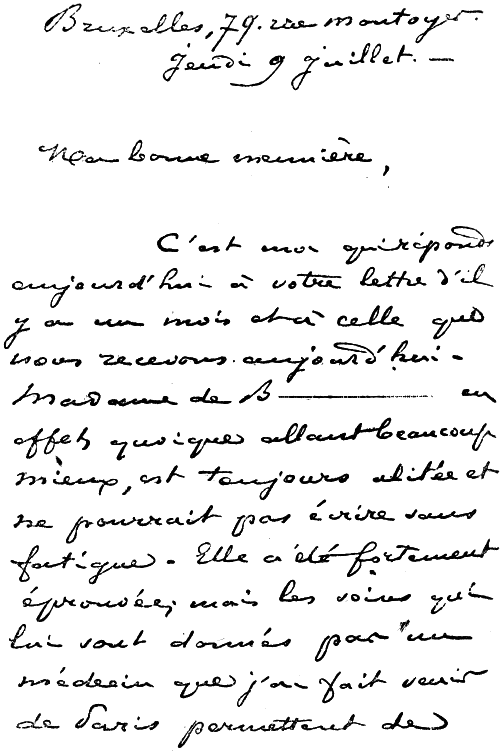 Bruxelles, 79. rue montoyer.
Jeudi 9 juillet. —
Ma bonne meunière,
C'est moi qui réponds
aujourd'hui à votre lettre d'il
y a un mois et à celle que
nous recevons aujourd'hui -
Madame de B———— en
effet, quoique allant beaucoup
mieux, est toujours alitée et
ne pourrait pas écrire sans
fatigue. Elle a été fortement
éprouvée; mais les soins qui
lui sont donnés par un
médecin que j'ai fait venir
de Paris permettent de